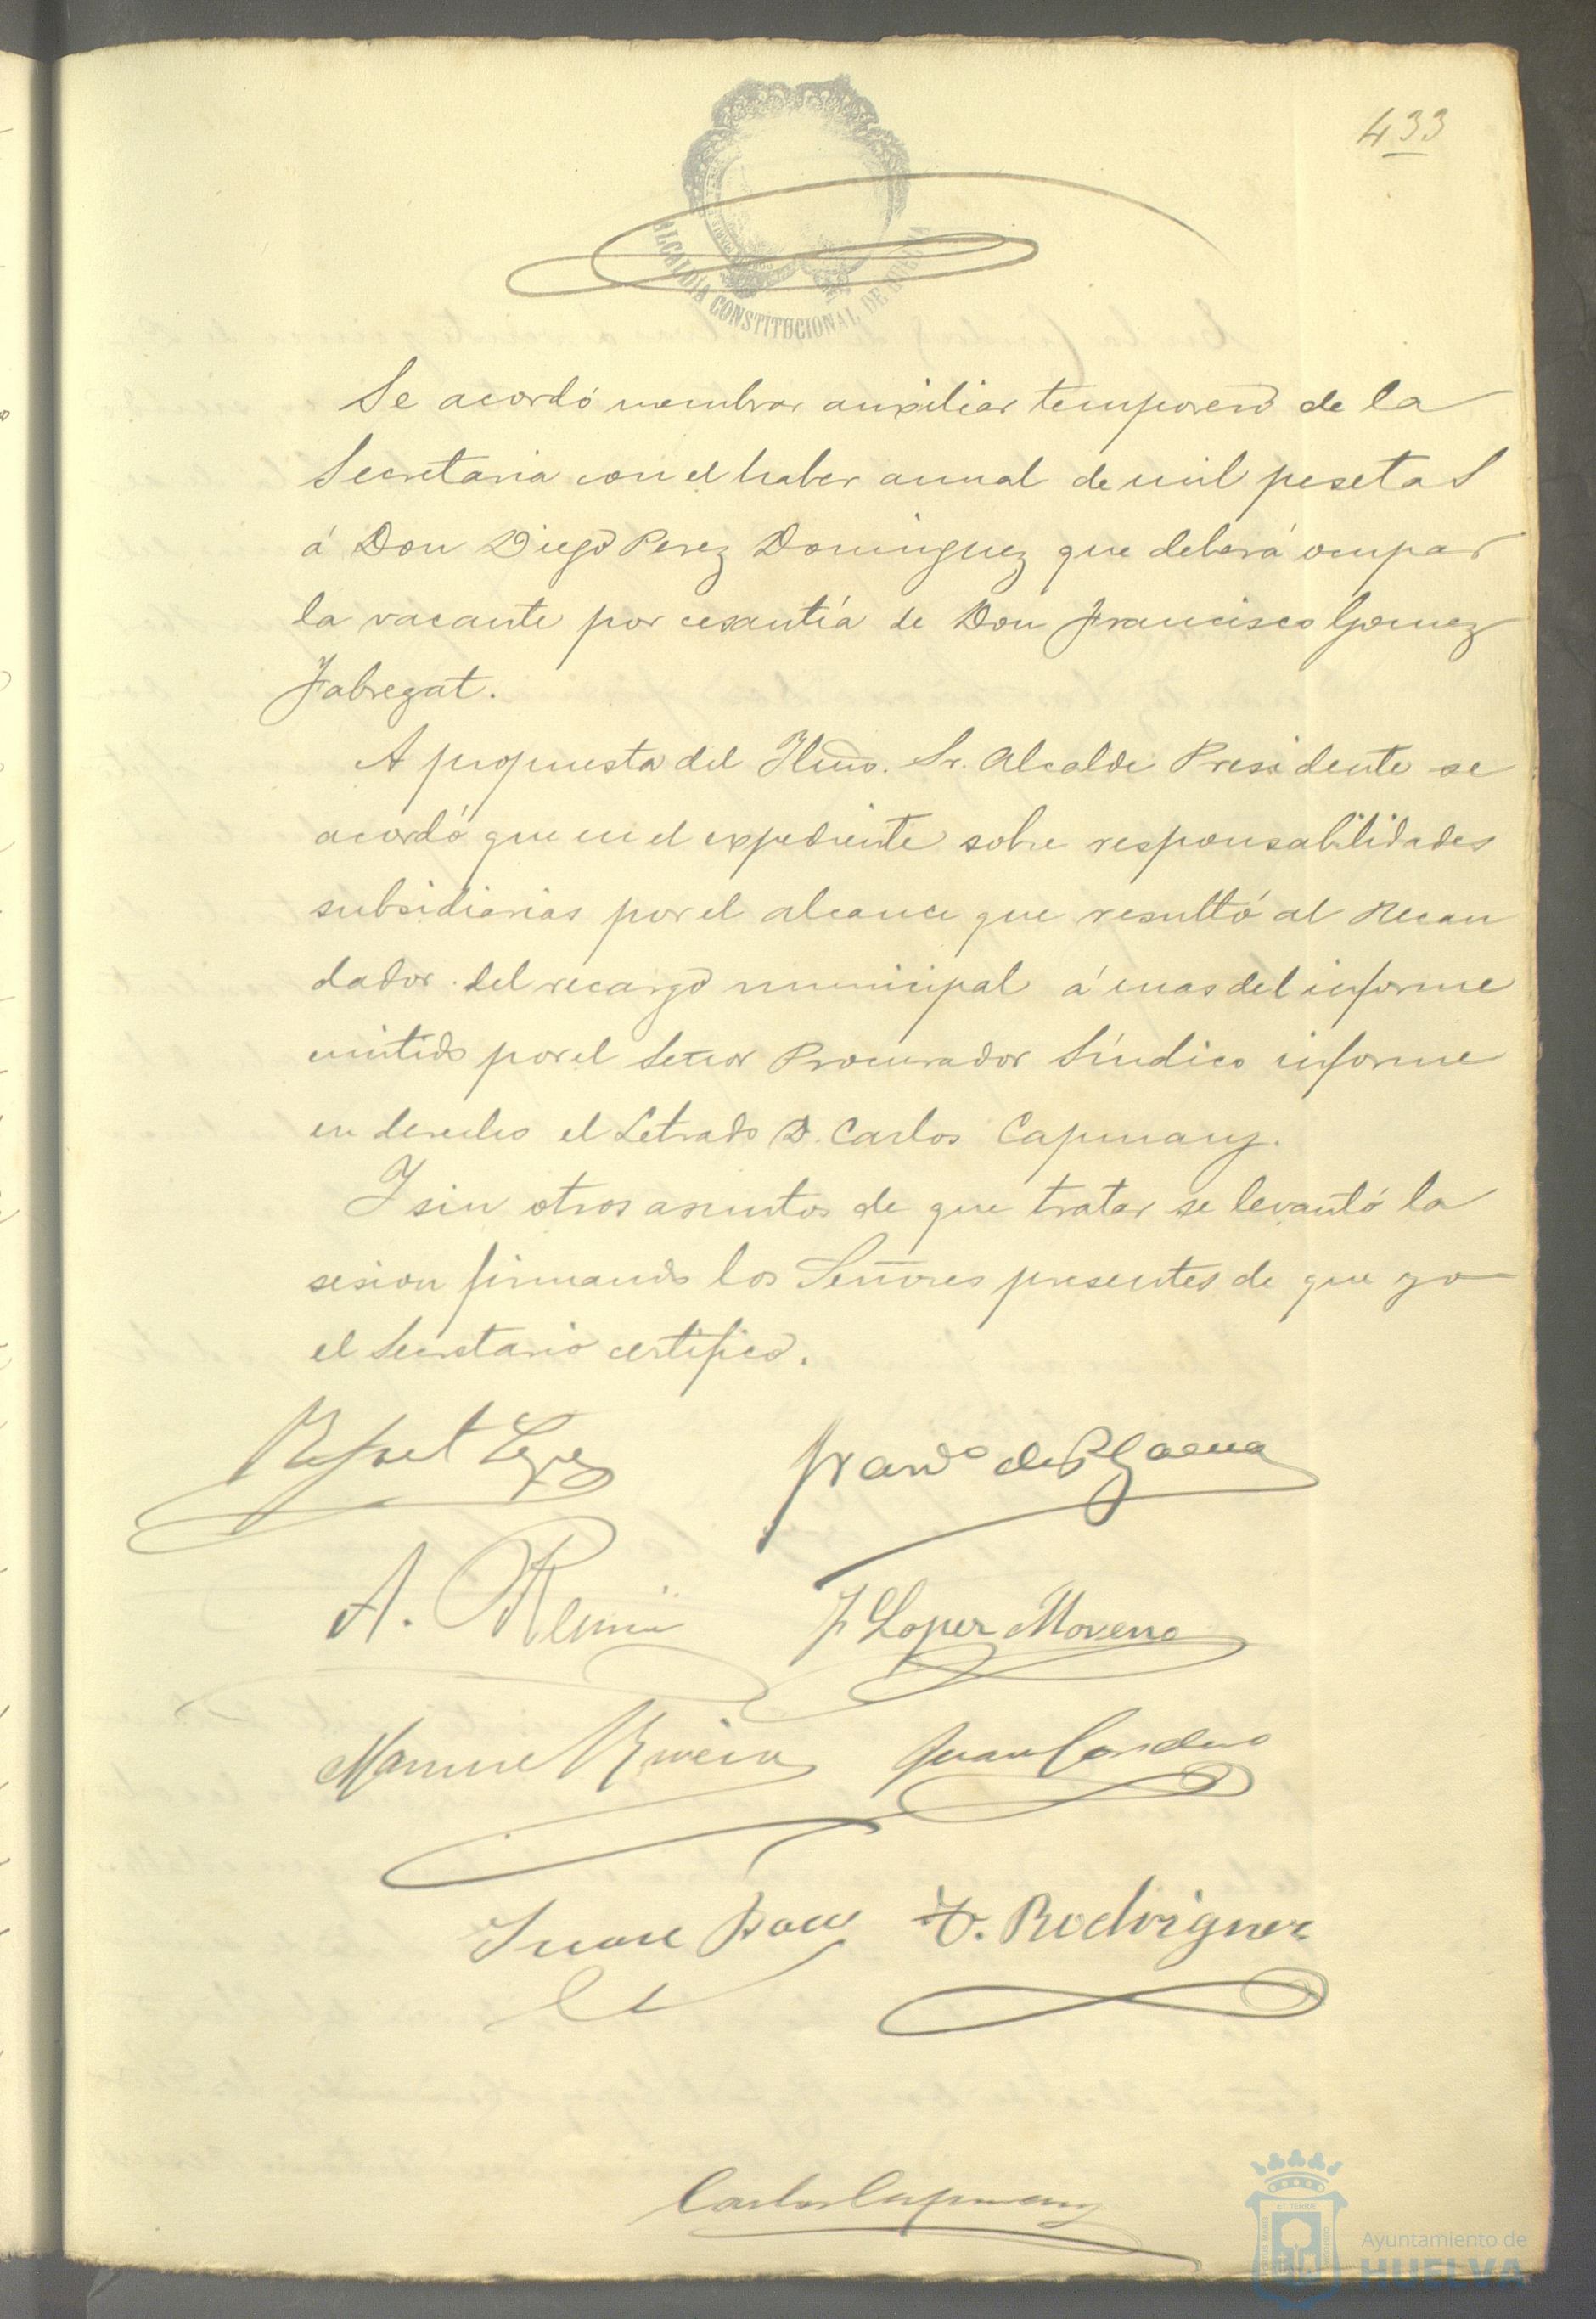 433
ALCALDÍA CONSTITUCIONAL DE HUELVA
Se acordó nombrar auxiliar temporero de la
Secretaria con el haber anual de mil pesetas
á Don Diego Perez Dominguez que deberá ocupar
la vacante por cesantía de Don Francisco Gomez
Fabregat.
A propuesta del Iltmo. Sr. Alcalde Presidente se
acordó que en el expediente sobre responsabilidades
subsidiarias por el alcance que resultó al Recau
dador del recargo municipal á mas del informe
emitido por el Señor Procurador Síndico informe
en derecho el Letrado D. Carlos Capmany.
Y sin otros asuntos de que tratar se levantó la
sesion firmando los Señores presentes de que yo
el Secretario certifico.
Rafael Lopez
Franco de P
A.
F Lopez Moreno
Manuel
Juan Cordero
F. Rodriguez
Carlos Capmany
Ayuntamiento de
HUELVA